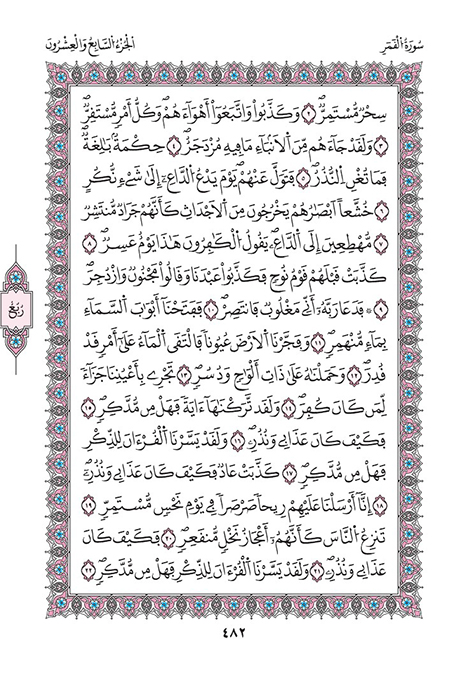 سُورَةُ الْقَمَرِ
الْجُزْءُ السَّابِعُ وَالْعِشْرُونَ
سِحْرٌ مُّسْتَمِرٌّ ٢ وَكَذَّبُواْ وَاتَّبَعُواْ أَهْوَآءَهُمْ وَكُلُّ أَمْرٍ مُّسْتَقِرٌّ
٣ وَلَقَدْ جَآءَهُم مِّنَ الْأَنۢبَآءِ مَا فِيهِ مُزْدَجَرٌ ٤ حِكْمَةٌ بَٰلِغَةٌ
فَمَا تُغْنِ النُّذُرُ ٥ فَتَوَلَّ عَنْهُمْ يَوْمَ يَدْعُ الدَّاعِۦٓ إِلَىٰ شَيْءٍ نُّكُرٍ
٦ خُشَّعاً أَبْصَٰرُهُمْ يَخْرُجُونَ مِنَ الْأَجْدَاثِ كَأَنَّهُمْ جَرَادٌ مُّنتَشِرٌ
٧ مُّهْطِعِينَ إِلَى الدَّاعِۦ يَقُولُ الْكَٰفِرُونَ هَٰذَا يَوْمٌ عَسِرٌ ٨
كَذَّبَتْ قَبْلَهُمْ قَوْمُ نُوحٍ فَكَذَّبُواْ عَبْدَنَا وَقَالُواْ مَجْنُونٌ وَازْدُجِرَ
٩ فَدَعَا رَبَّهُۥٓ أَنِّي مَغْلُوبٌ فَانتَصِرْ ١٠ فَفَتَحْنَآ أَبْوَٰبَ السَّمَآءِ
بِمَآءٍ مُّنْهَمِرٍ ١١ وَفَجَّرْنَا الْأَرْضَ عُيُوناً فَالْتَقَى الْمَآءُ عَلَىٰٓ أَمْرٍ قَدْ
قُدِرَ ١٢ وَحَمَلْنَٰهُ عَلَىٰ ذَاتِ أَلْوَٰحٍ وَدُسُرٍ ١٣ تَجْرِي بِأَعْيُنِنَا جَزَآءً
لِّمَن كَانَ كُفِرَ ١٤ وَلَقَد تَّرَكْنَٰهَآ ءَايَةً فَهَلْ مِن مُّدَّكِرٍ ١٥
فَكَيْفَ كَانَ عَذَابِي وَنُذُرِۦ ١٦ وَلَقَدْ يَسَّرْنَا الْقُرْءَانَ لِلذِّكْرِ
فَهَلْ مِن مُّدَّكِرٍ ١٧ كَذَّبَتْ عَادٌ فَكَيْفَ كَانَ عَذَابِي وَنُذُرِۦٓ
١٨ إِنَّآ أَرْسَلْنَا عَلَيْهِمْ رِيحاً صَرْصَراً فِي يَوْمِ نَحْسٍ مُّسْتَمِرٍّ ١٩
تَنزِعُ النَّاسَ كَأَنَّهُمْ أَعْجَازُ نَخْلٍ مُّنقَعِرٍ ٢٠ فَكَيْفَ كَانَ
عَذَابِي وَنُذُرِۦ ٢١ وَلَقَدْ يَسَّرْنَا الْقُرْءَانَ لِلذِّكْرِ فَهَلْ مِن مُّدَّكِرٍ ٢٢
رُبُعُ
٤٨٢